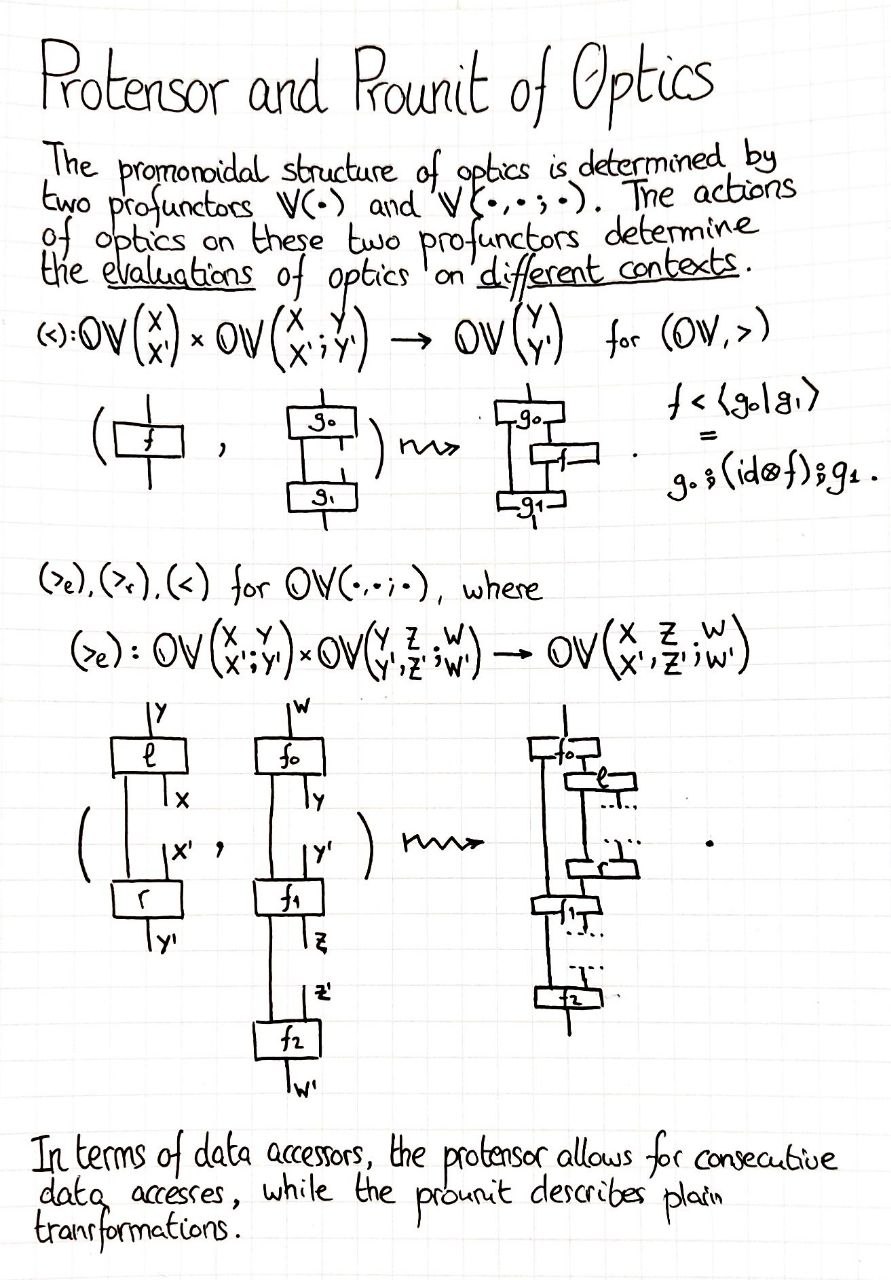 Protensor and Prounit of Optics
The promonoidal structure of optics is determined by
two profunctors 𝕍(•) and 𝕍(•,•;•). The actions
of optics on these two profunctors determine
the evaluations of optics on different contexts.
(<):𝕆𝕍(X X') × 𝕆𝕍(X X' ; Y Y') → 𝕆𝕍(Y Y') for (𝕆𝕍,>)
( f , g₀ g₁ ) ⇝ g₀ f g₁ .
f < ⟨g₀|g₁⟩
=
g₀⨾(id⊗f)⨾g₁.
(>ℓ),(>ᵣ),(<) for 𝕆𝕍(•,•;•), where
(>ℓ): 𝕆𝕍(X X' ; Y Y') × 𝕆𝕍(Y Y' , Z Z' ; W W') → 𝕆𝕍(X X' , Z Z' ; W W')
Y W
ℓ f₀ f₀
X Y ℓ
( X' , Y' ) ⇝ .
r f₁ r
Y' Z f₁
Z'
f₂ f₂
W'
In terms of data accessors, the protensor allows for consecutive
data accesses, while the prounit describes plain
transformations.